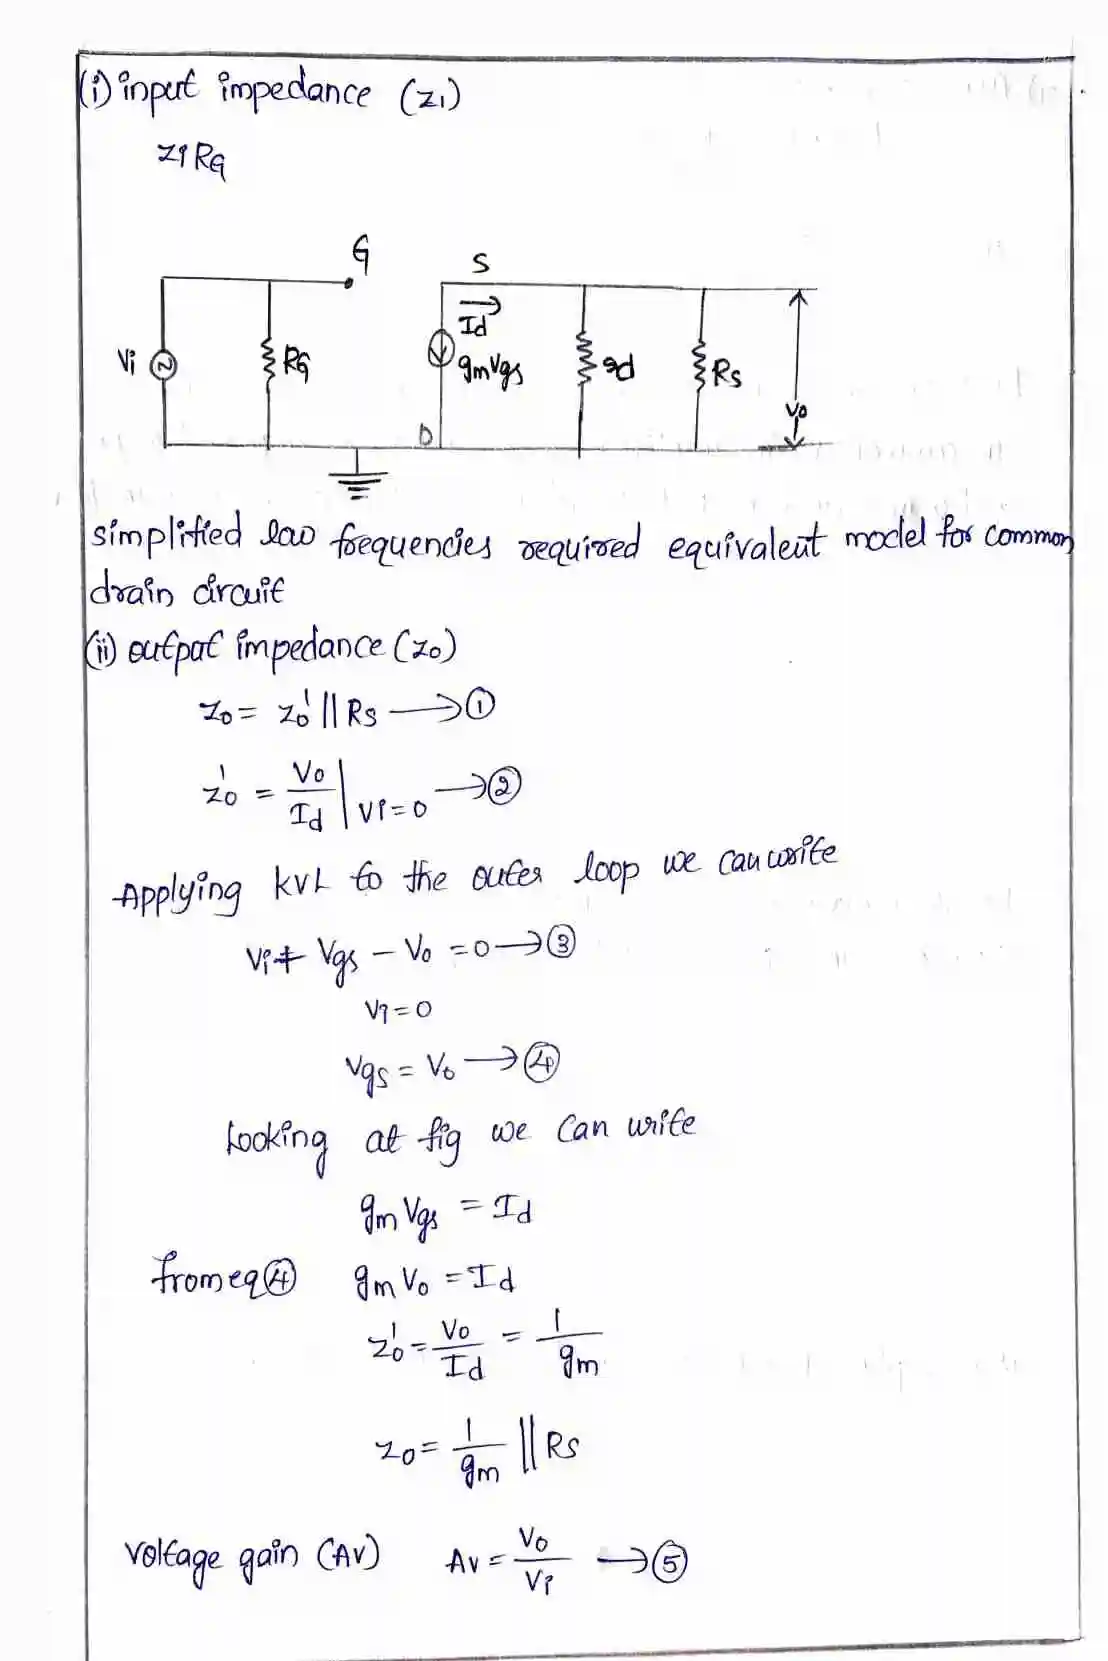 (i) input impedance (Zi)
Zi RG
G
S
Id
Vi
RG
gmVgs
rd
Rs
Vo
D
simplified low frequencies required equivalent model for common
drain circuit
(ii) output impedance (Zo)
Zo = Zo' || Rs → ①
Zo' = Vo/Id | Vi=0 → ②
Applying KVL to the outer loop we can write
Vi + Vgs - Vo = 0 → ③
Vi = 0
Vgs = Vo → ④
Looking at fig we can write
gm Vgs = Id
from eq ④ gm Vo = Id
Zo' = Vo/Id = 1/gm
Zo = 1/gm || Rs
voltage gain (Av) Av = Vo/Vi → ⑤